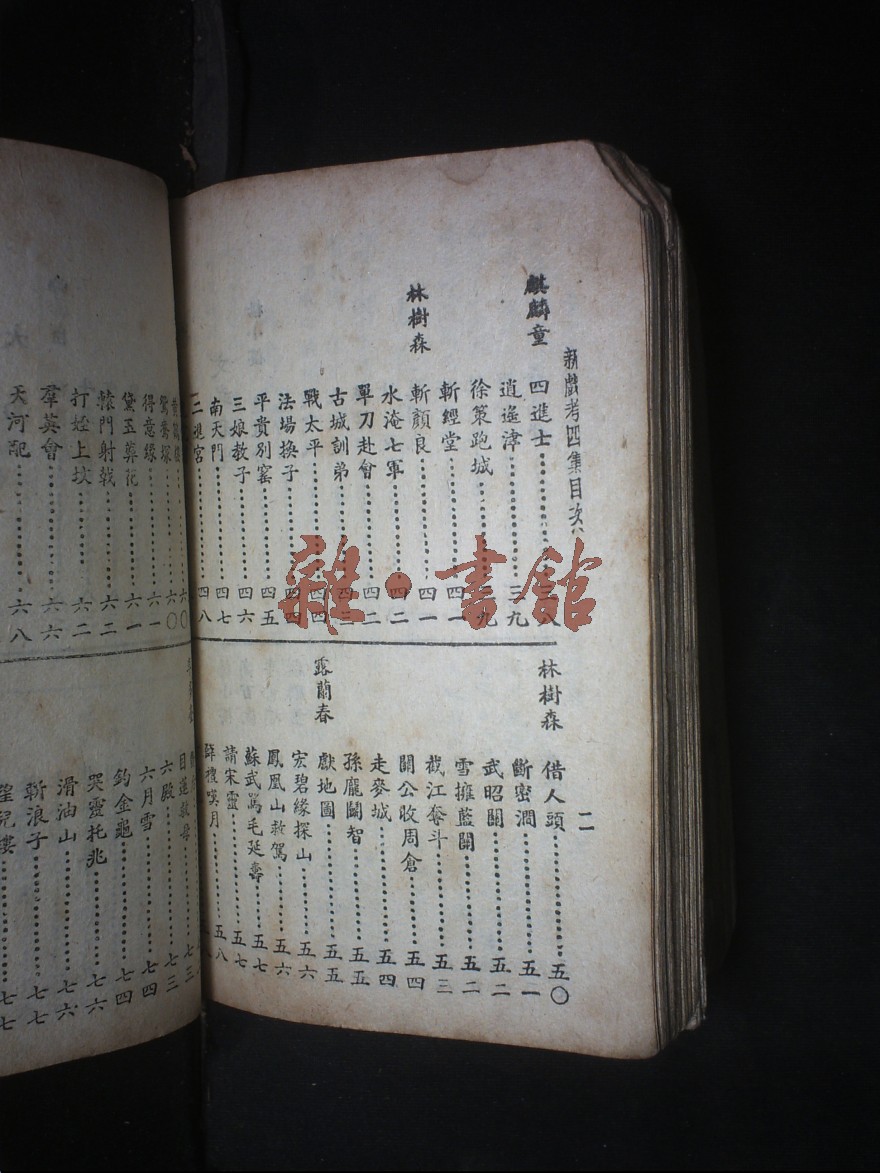 新戲考四集目次
二
麒麟童
四進士 三八
逍遙津 三九
徐策跑城 三九
斬經堂 四一
林樹森
斬顏良 四一
水淹七軍 四二
單刀赴會 四二
古城訓弟
戰太平 四四
法場換子 四四
平貴別窰 四五
三娘教子 四六
南天門 四七
二進宮 四八
林樹森
借人頭 五〇
斷密澗 五一
武昭關 五二
雪擁藍關 五二
截江奪斗 五三
關公收周倉 五四
走麥城 五四
孫龐鬭智 五五
獻地圖 五五
露蘭春
宏碧緣探山 五六
鳳凰山救駕 五六
蘇武罵毛延壽 五七
請宋靈 五七
薛禮嘆月 五八
六〇
鴛鴦塚 六〇
得意緣 六一
黛玉葬花 六一
轅門射戟 六二
打姪上坟 六二
羣英會 六六
天河配 六八
目蓮救母 七三
六殿 七三
六月雪 七四
釣金龜 七四
哭靈托兆 七六
滑油山 七六
斬浪子 七七
七七
雜·書館